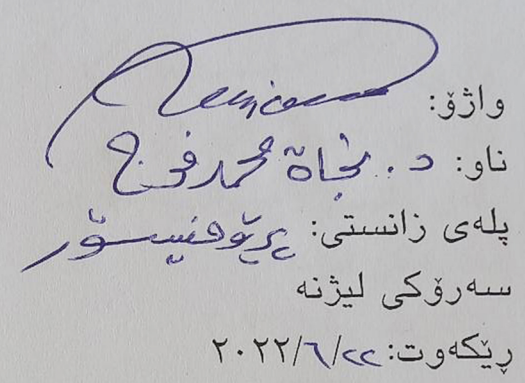 واژۆ:
ناو: د. نجاة محمد فرج
پلەی زانستی: پرۆفیسۆر
سەرۆکی لیژنە
ڕێکەوت: ٢٠٢٢/٦/٢٢